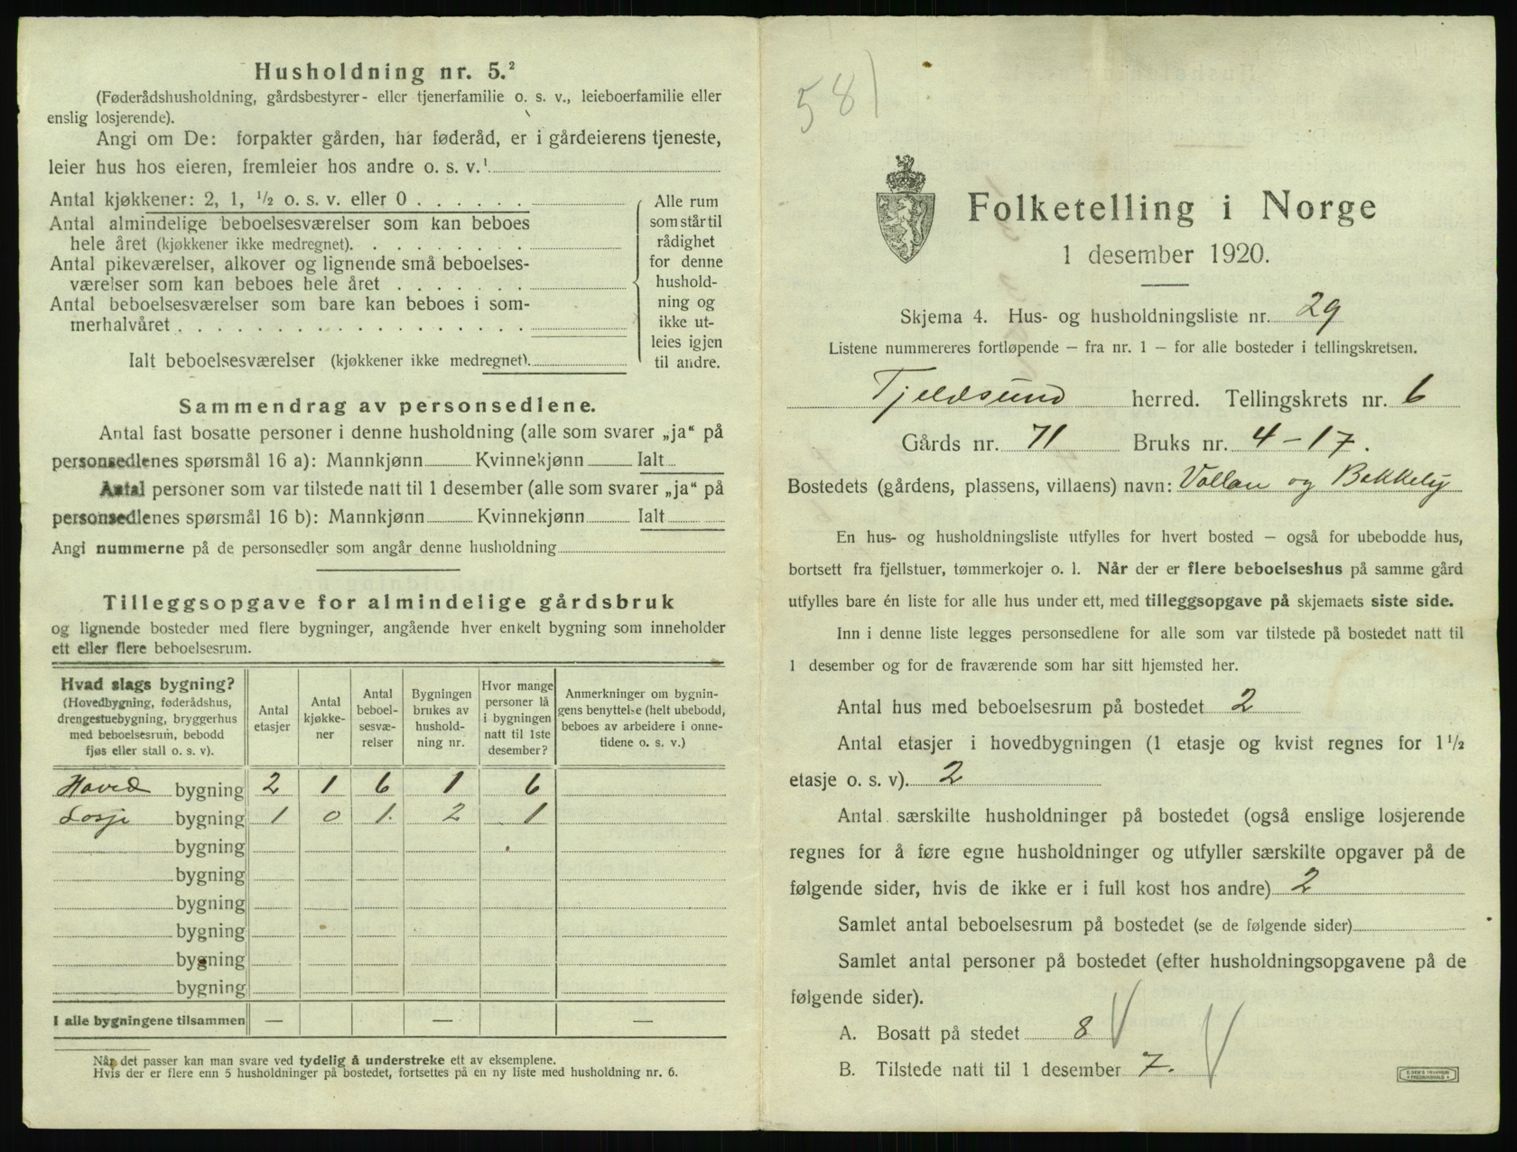 Husholdning nr. 5.²
(Føderådshusholdning, gårdsbestyrer- eller tjenerfamilie o. s. v., leieboerfamilie eller
enslig losjerende).
Angi om De: forpakter gården, har føderåd, er i gårdeierens tjeneste,
leier hus hos eieren, fremleier hos andre o. s. v.¹
Antal kjøkkener: 2, 1, ½ o. s. v. eller 0 . . . . . .
Antal almindelige beboelsesværelser som kan beboes
hele året (kjøkkener ikke medregnet). . . . . . . . .
Antal pikeværelser, alkover og lignende små beboelses-
værelser som kan beboes hele året . . . . . . .
Antal beboelsesværelser som bare kan beboes i som-
merhalvåret . . . . . . . . . . . . . . . . . .
Ialt beboelsesværelser (kjøkkener ikke medregnet).
Alle rum
som står til
rådighet
for denne
hushold-
ning og
ikke ut-
leies igjen
til andre.
Sammendrag av personsedlene.
Antal fast bosatte personer i denne husholdning (alle som svarer „ja“ på
personsedlenes spørsmål 16 a): Mannkjønn Kvinnekjønn Ialt
Antal personer som var tilstede natt til 1 desember (alle som svarer „ja“ på
personsedlenes spørsmål 16 b): Mannkjønn Kvinnekjønn Ialt
Angi nummerne på de personsedler som angår denne husholdning
Tilleggsopgave for almindelige gårdsbruk
og lignende bosteder med flere bygninger, angående hver enkelt bygning som inneholder
ett eller flere beboelsesrum.
Hvad slags bygning?
(Hovedbygning, føderådshus,
drengestuebygning, bryggerhus
med beboelsesrum, bebodd
fjøs eller stall o. s. v).
Antal
etasjer
Antal
kjøkke-
ner
Antal
beboel-
sesvæ-
relser
Bygningen
brukes av
hushold-
ning nr.
Hvor mange
personer lå
i bygningen
natt til 1ste
desember?
Anmerkninger om bygnin-
gens benyttelse (helt ubebodd,
beboes av arbeidere i onne-
tidene o. s. v.)
Hoved bygning 2 1 6 1 6
Losje bygning 1 0 1. 2 1
bygning
bygning
bygning
bygning
bygning
bygning
I alle bygningene tilsammen — — —
Når det passer kan man svare ved tydelig å understreke ett av eksemplene.
Hvis der er flere enn 5 husholdninger på bostedet, fortsettes på en ny liste med husholdning nr. 6.
58
Folketelling i Norge
1 desember 1920.
Skjema 4. Hus- og husholdningsliste nr. 29
Listene nummereres fortløpende — fra nr. 1 — for alle bosteder i tellingskretsen.
Tjeldsund herred. Tellingskrets nr. 6
Gårds nr. 71 Bruks nr. 4-17.
Bostedets (gårdens, plassens, villaens) navn: Vollan og Bakkely
En hus- og husholdningsliste utfylles for hvert bosted — også for ubebodde hus,
bortsett fra fjellstuer, tømmerkojer o. l. Når der er flere beboelseshus på samme gård
utfylles bare én liste for alle hus under ett, med tilleggsopgave på skjemaets siste side.
Inn i denne liste legges personsedlene for alle som var tilstede på bostedet natt til
1 desember og for de fraværende som har sitt hjemsted her.
Antal hus med beboelsesrum på bostedet 2
Antal etasjer i hovedbygningen (1 etasje og kvist regnes for 1½
etasje o. s. v). 2
Antal særskilte husholdninger på bostedet (også enslige losjerende
regnes for å føre egne husholdninger og utfyller særskilte opgaver på de
følgende sider, hvis de ikke er i full kost hos andre) 2
Samlet antal beboelsesrum på bostedet (se de følgende sider)
Samlet antal personer på bostedet (efter husholdningsopgavene på de
følgende sider).
A. Bosatt på stedet 8
B. Tilstede natt til 1 desember 7.